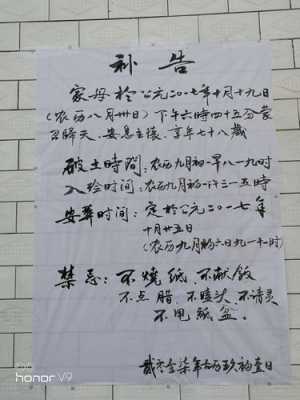 补告
家母於公元二〇一七年十月十九日
(农历八月卅日)下午六時四十五分蒙
召歸天、安息主懷、享年七十八歲
破土時間:农历九月初一早八一九時
入殓时间:农历九月初一下三一五時
安葬时间:定於公元二〇一七年
十月廿五日
(农历九月初六日九一十一时)
禁忌:不烧纸、不献飯
不点腊、不磕头、不請灵
不甩紙盆。
honor V9